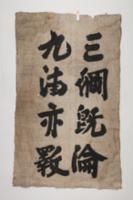 三綱既淪
九法亦斁